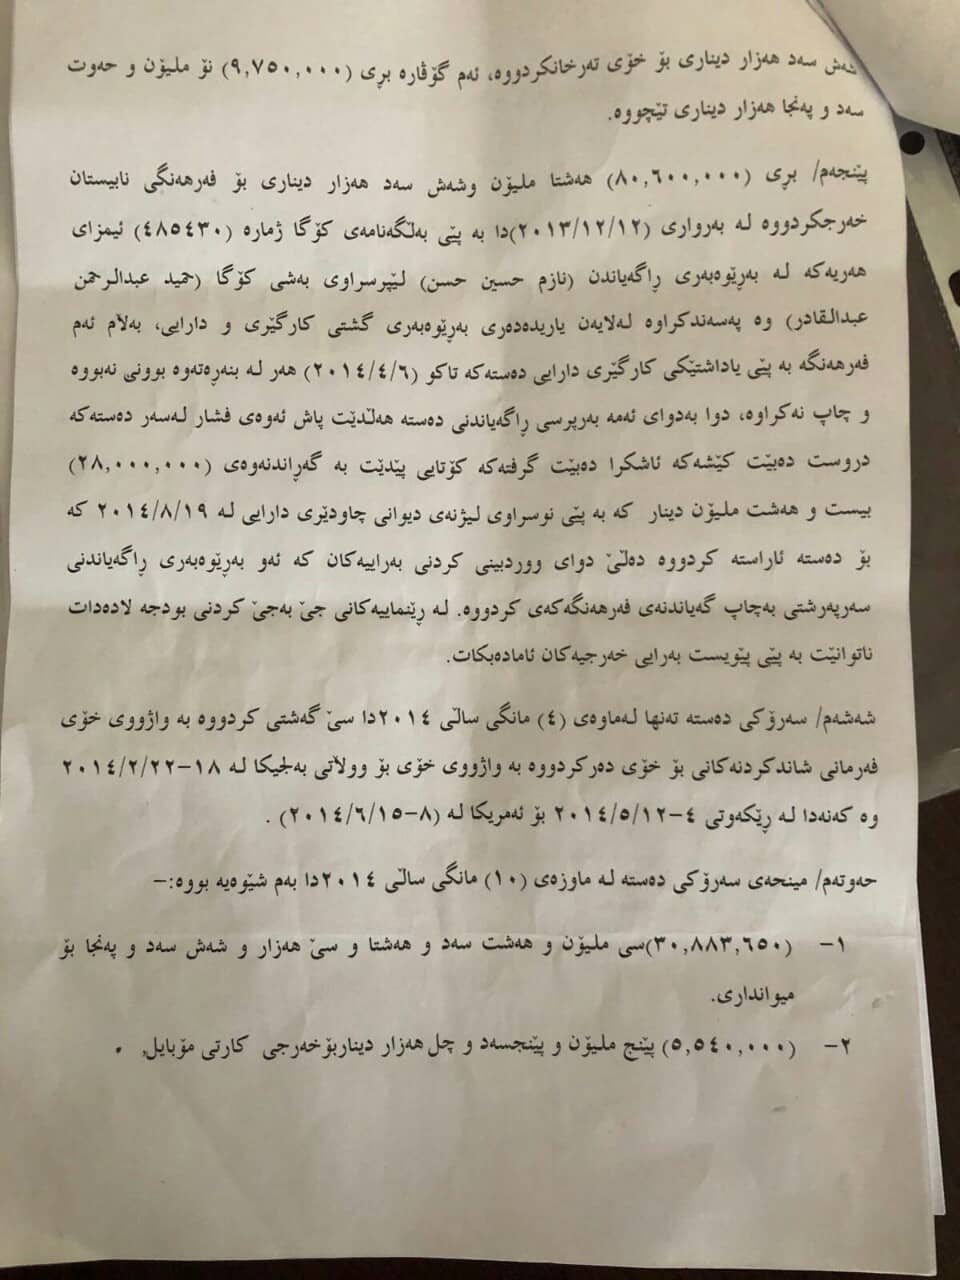 شەش سەد هەزار دیناری بۆ خۆی تەرخانکردووە، ئەم گۆڤارە بڕی (٩,٧٥٠,٠٠٠) نۆ ملیۆن و حەوت
سەد و پەنجا هەزار دیناری تێچووە.
پێنجەم/ بڕی (٨٠,٦٠٠,٠٠٠) هەشتا ملیۆن وشەش سەد هەزار دیناری بۆ فەرهەنگی نابیستان
خەرجکردووە لە بەرواری (٢٠١٣/١٢/١٢)دا بە پێی بەڵگەنامەی کۆگا ژمارە (٤٨٥٤٣٠) ئیمزای
هەریەکە لە بەڕێوەبەری ڕاگەیاندن (نازم حسین حسن) لێپرسراوی بەشی کۆگا (حمید عبدالرحمن
عبدالقادر) وە پەسەندکراوە لەلایەن یاریدەدەری بەڕێوەبەری گشتی کارگێری و دارایی، بەلام ئەم
فەرهەنگە بە پێی یاداشتێکی کارگێری دارایی دەستەکە تاکو (٢٠١٤/٤/٦) هەر لە بنەڕەتەوە بوونی نەبووە
و چاپ نەکراوە، دوا بەدوای ئەمە بەرپرسی ڕاگەیاندنی دەستە هەڵدێت پاش ئەوەی فشار لەسەر دەستەکە
دروست دەبێت کێشەکە ئاشکرا دەبێت گرفتەکە کۆتایی پێدێت بە گەڕاندنەوەی (٢٨,٠٠٠,٠٠٠)
بیست و هەشت ملیۆن دینار کە بە پێی نوسراوی لیژنەی دیوانی چاودێری دارایی لە ٢٠١٤/٨/١٩ کە
بۆ دەستە ئاراستە کردووە دەڵێ دوای ووردبینی کردنی بەراییەکان کە ئەو بەڕێوەبەری ڕاگەیاندنی
سەرپەرشتی بەچاپ گەیاندنەی فەرهەنگەکەی کردووە. لە ڕێنماییەکانی جێ بەجێ کردنی بودجە لادەدات
ناتوانێت بە پێی پێویست بەرایی خەرجیەکان ئامادەبکات.
شەشەم/ سەرۆکی دەستە تەنها لەماوەی (٤) مانگی ساڵی ٢٠١٤دا سێ گەشتی کردووە بە واژووی خۆی
فەرمانی شاندکردنەکانی بۆ خۆی دەرکردووە بە واژووی خۆی بۆ وولاتی بەلجیکا لە ١٨-٢٠١٤/٢/٢٢
وە کەنەدا لە ڕێکەوتی ٤-٢٠١٤/٥/١٢ بۆ ئەمریکا لە (٨-٢٠١٤/٦/١٥) .
حەوتەم/ مینحەی سەرۆکی دەستە لە ماوزەی (١٠) مانگی ساڵی ٢٠١٤دا بەم شێوەیە بووە:-
١- (٣٠,٨٨٣,٦٥٠)سی ملیۆن و هەشت سەد و هەشتا و سێ هەزار و شەش سەد و پەنجا بۆ
میوانداری.
٢- (٥,٥٤٠,٠٠٠) پێنج ملیۆن و پێنجسەد و چل هەزار دیناربۆخەرجی کارتی مۆبایل.